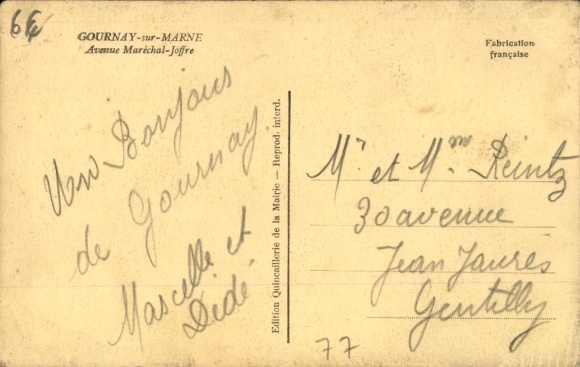 GOURNAY-sur-MARNE
Avenue Maréchal-Joffre
Fabrication
française
Un Bonjour
de Gournay.
Marcelle et
Dédé
Edition Quincaillerie de la Mairie — Reprod. interd.
Mr et Mme Reintz
30 avenue
Jean Jaurès
Gentilly
77